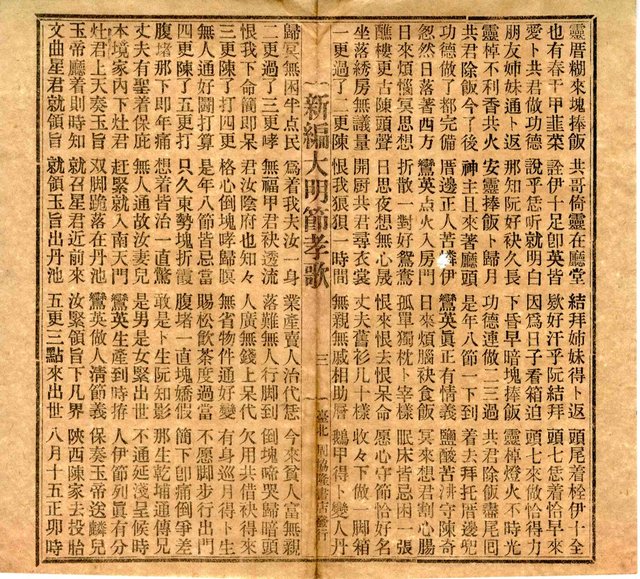 靈厝糊來塊捧飯 共哥倚靈在廳堂 結拜姊妹得卜返 頭尾着栓伊十全
也有春干甲韮菜 詮伊十足卽英皆 欵好汗乎阮結拜 頭七恁着恰早來
愛卜共君做功德 說乎恁听就明白 因爲日子看箱迫 頭七來做恰得力
朋友姊妹通卜返 那知阮好袂久長 下昏早暗塊捧飯 靈棹燈火不時光
靈棹不利香共火 安靈捧飯卜歸月 功德連做二三過 共君除飯盡尾囘
共君除飯今了後 神主且來著廳頭 是年八節一下到 着去拜托厝邊兜
功德做了都完備 厝邊正人苦伊 鸞英眞正有情義 鹽酸苦湆守陳奇
忽然日落著西方 鸞英点火入房門 日來煩腦袂食飯 冥來想君割心腸
日來煩惱冥思想 折散一對好鴛鴦 孤單獨枕卜宰樣 眠床皆忌困一張
醮樓更古陳頭聲 日思夜想無心晟 恨來恨去恨呆命 愿心守節恰好名
坐落綉房無議量 開厨共君尋衣裳 丈夫舊衫几十樣 收々下做一脚箱
一更過了二更陳 恨我狽狽一時間 無親無戚相助厝 鵝甲得卜變人丹
新編大明節孝歌 三 臺北 協隆書店發行
歸冥無困半点民 爲着我夫汝一身 業產賣人治代恁 今來貧人富無親
二更過了三更哮 無福甲君袂透流 落難無人行脚到 倒塊啼哭歸暗頭
恨我下命簡卽呆 君汝陰府也知々 人廣無錢上呆代 欠用共借袂得來
三更陳了打四更 格心倒塊哮歸暝 無省物件通好變 有身巡月得卜生
無人通好鬪打算 是年八節皆忌當 賜松飮茶度過當 不愿脚步行出門
四更陳了五更打 只久東勢塊折霞 腹堵一直塊嬌假 簡下卽痛倒爭差
腹堵那下即年痛 想着皆治一直驚 敢是卜生阮知影 那生乾埔通傳兄
丈夫有聖着保庇 無人通故汝妻兒 是男是女緊出世 不通延淺星候時
本境家內下灶君 赶緊就入南天門 鸞英生產到時捹 人伊節列眞有分
灶君上天奏玉旨 双脚跪落在丹池 鸞英做人淸節義 保奏玉帝送麟兒
玉帝廳着則時知 就召星君近前來 汝緊領旨下凡界 陝西陳家去投胎
文曲星君就領旨 就領玉旨出丹池 五更三點來出世 八月十五正卯時